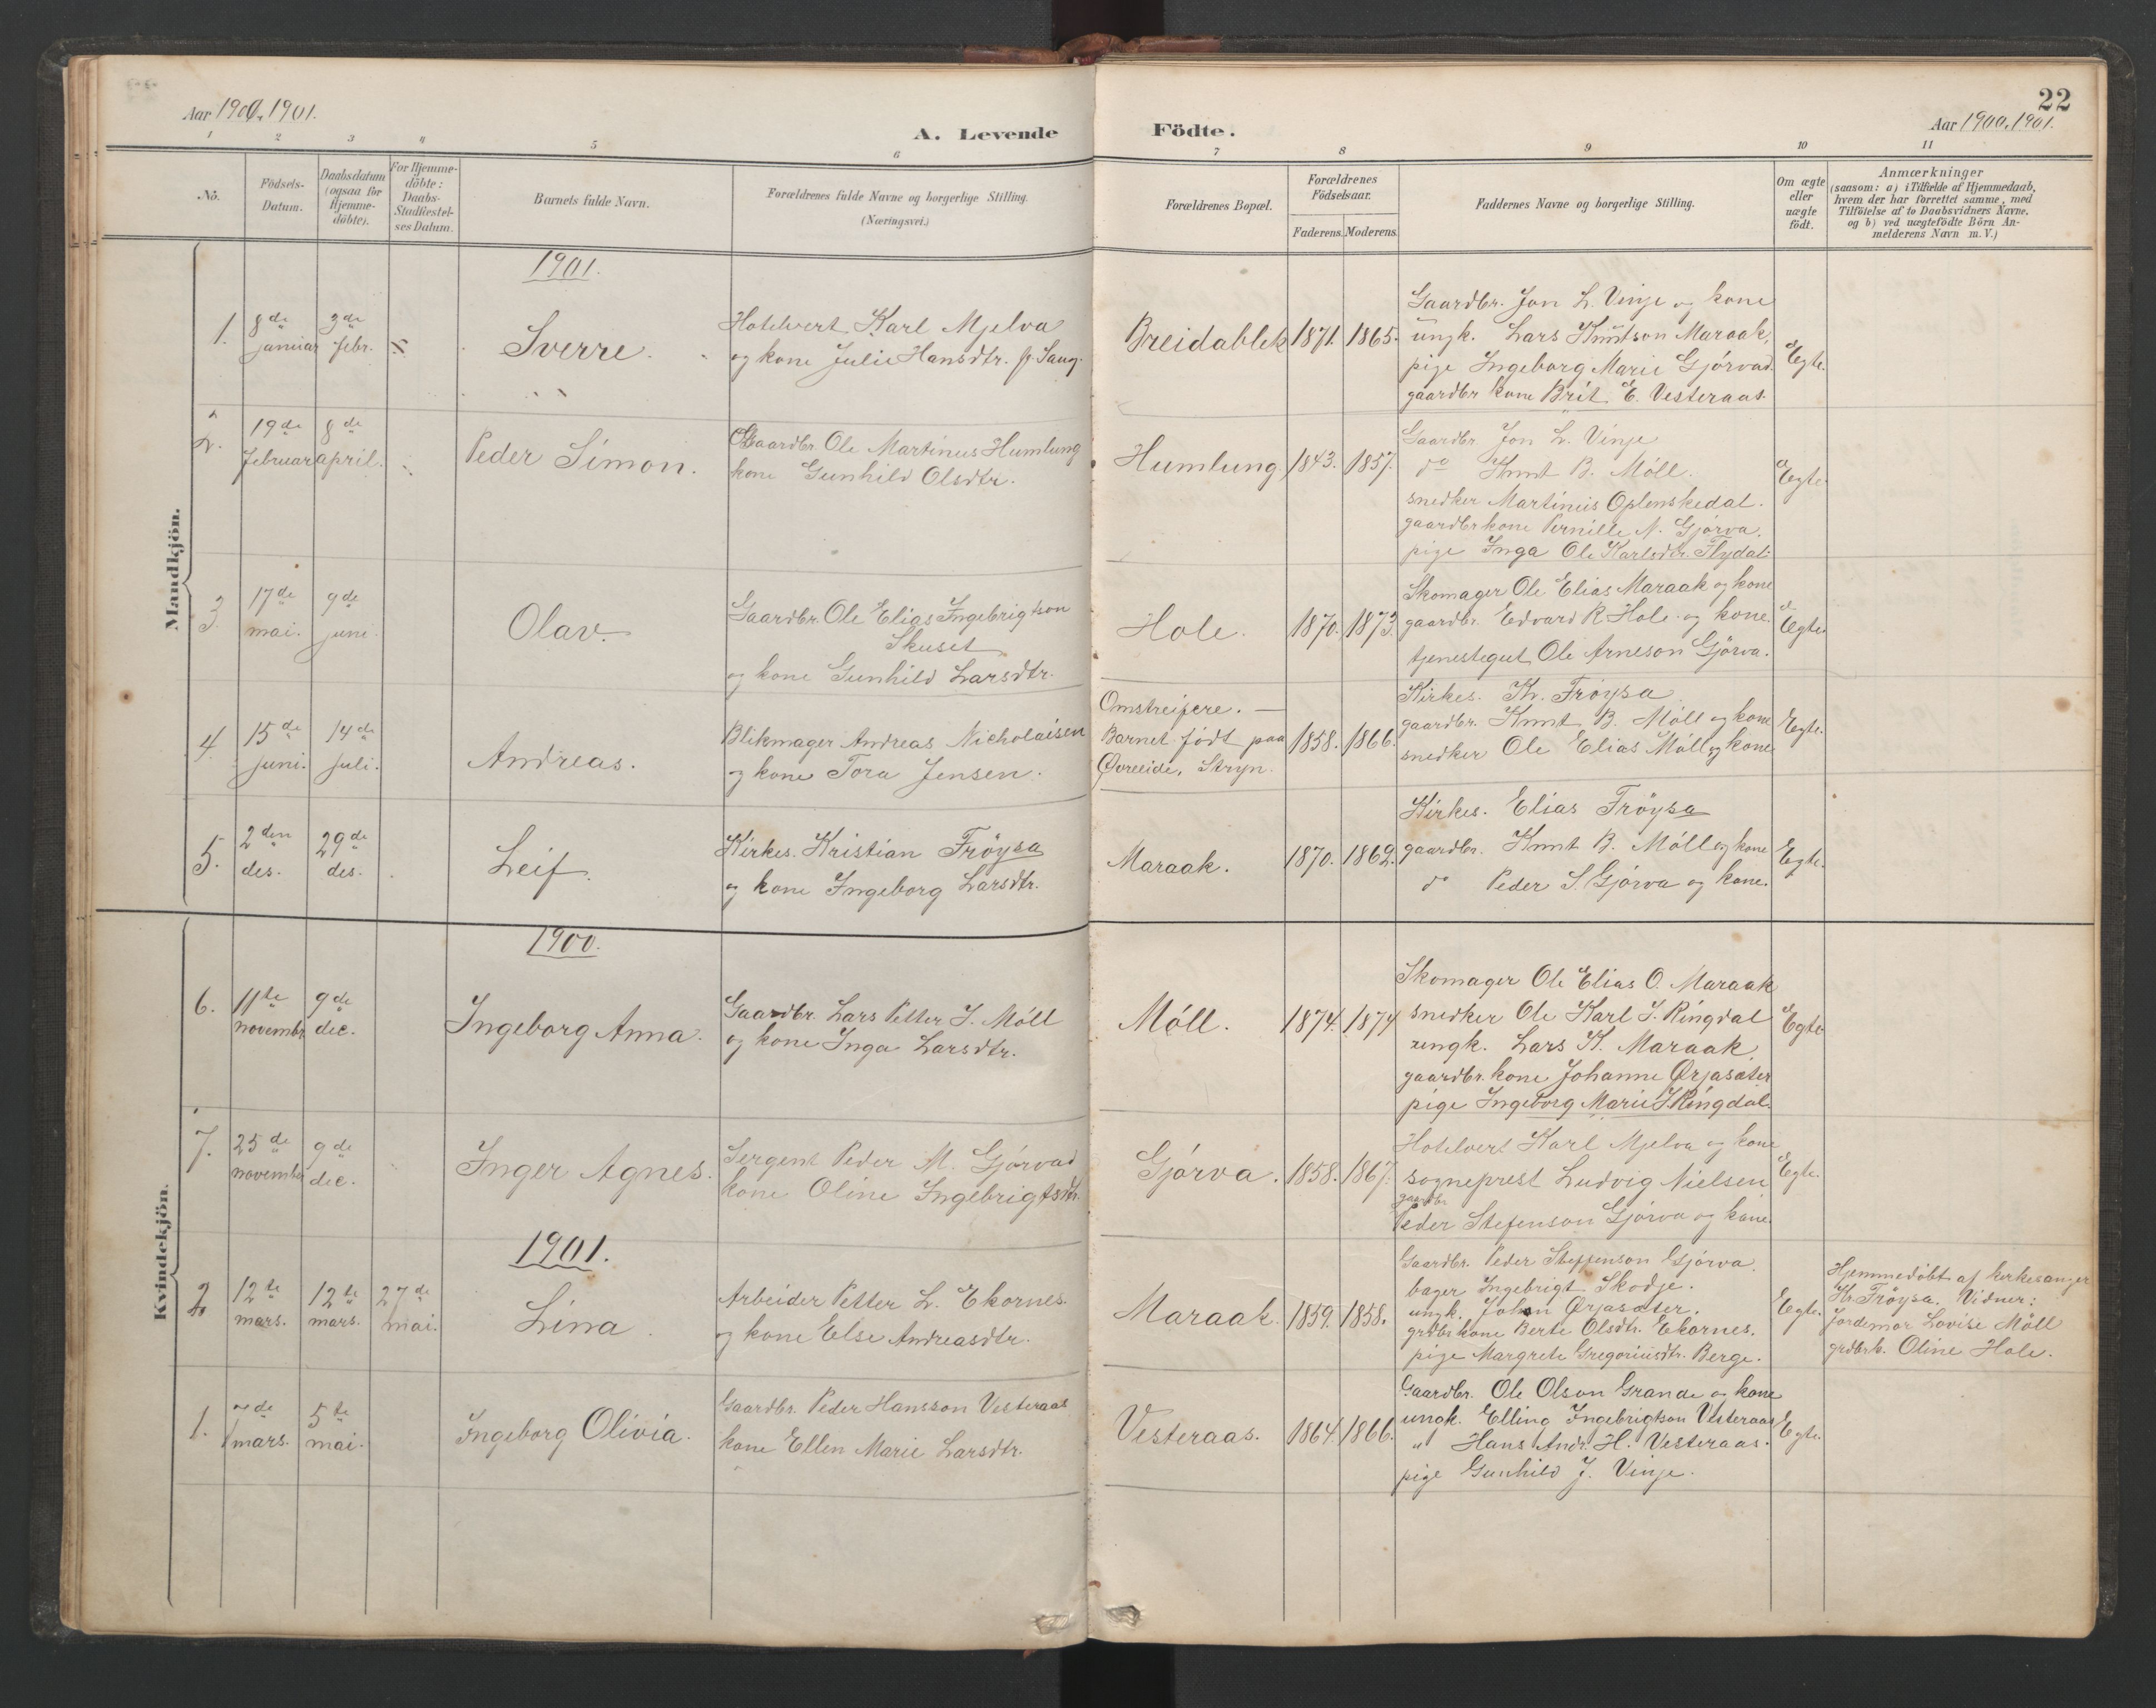 22
Aar 1900, 1901.
A. Levende Födte.
Aar 1900, 1901.
1 2 3 4 5 6 7 8 9 10 11
No.
Födsels-Datum.
Daabsdatum (ogsaa for Hjemme-döbte).
For Hjemme-döbte: Daabs-Stadfæstel-ses Datum.
Barnets fulde Navn.
Forældrenes fulde Navne og borgerlige Stilling. (Næringsvei.)
Forældrenes Bopæl.
Forældrenes Födselsaar.
Faderens. Moderens.
Faddernes Navne og borgerlige Stilling.
Om ægte eller uægte födt.
Anmærkninger
(saasom: a) i Tilfælde af Hjemmedaab,
hvem der har forrettet samme, med
Tilföielse af to Daabsvidners Navne,
og b) ved uægtefödte Börn An-
melderens Navn m. V.)
Mandkjön.
1901.
1. 8de januar 3de febr.
Sverre.
Hotelvert Karl Mjelva
og kone Julie Hansdtr. f. Saug.
Breidablik 1871. 1865.
Gaardbr. Jon L. Vinje og kone
ungk. Lars Knutson Maraak,
pige Ingeborg Marie Gjørvad
gaardbr kone Brit E. Vesteraas
Egte.
2. 19de februar 8de april.
Peder Simon.
Gaardbr. Ole Martinus Humlung
kone Gunhild Olsdtr.
Humlung 1843. 1857.
Gaardbr. Jon L. Vinje
do Knut B. Möll.
snedker Martinus Oplenskedal.
gaardbrkone Pernille N. Gjörva.
pige Inga Ole Karlsdtr. Flydal.
Egte.
3. 17de mai. 9de juni.
Olav.
Gaardbr. Ole Elias Ingebrigtson
Skuset
og kone Gunhild Larsdtr.
Hole. 1870. 1873.
Skomager Ole Elias Maraak og kone
gaardbr. Edvard R. Hole og kone.
tjenestegut Ole Arneson Gjörva.
Egte.
4. 15de juni. 14de juli.
Andreas.
Blikmager Andreas Nicholaisen
og kone Tora Jensen.
Omstreifere. —
Barnet födt paa
Øvreeide, Stryn.
1858. 1866.
Kirkes. Kr. Fröysa
gaardbr. Knut B. Möll og kone
snedker Ole Elias Möll og kone
Egte.
5. 2den des. 29de des.
Leif.
Kirkes. Kristian Fröysa
og kone Ingeborg Larsdtr.
Maraak. 1870. 1862.
Kirkes. Elias Fröysa
gaardbr. Knut B. Möll og kone
do Peder S. Gjörva og kone.
Egte.
Kvindekjön.
1900.
6. 11te novembr 9de dec.
Ingeborg Anna.
Gaardbr. Lars Petter J. Möll
og kone Inga Larsdtr.
Möll. 1874. 1874
Skomager Ole Elias O. Maraak
snedker Ole Karl J. Ringdal
ungk. Lars K. Maraak.
gaardbr. kone Johanne Ørjasæter
pige Ingeborg Marie J. Ringdal.
Egte.
7. 25de november 9de dec.
Inger Agnes.
Sergent Peder M. Gjörvad
kone Oline Ingebrigtsdtr.
Gjörva. 1858. 1867.
Hotelvert Karl Mjelva og kone
sogneprest Ludvig Nielsen
gaardbr.
Peder Stefenson Gjörva og kone.
Egte.
1901.
2 12te mars. 12te mars. 27de mai.
Lina.
Arbeider Petter L. Ekornes.
og kone Else Andreasdtr.
Maraak. 1859. 1858.
Gaardbr. Peder Steffenson Gjörva.
bager Ingebrigt Skodje.
ungk. Johan Ørjasæter.
grdbrkone Berte Olsdtr. Ekornes.
pige Margrete Gregoriusdtr. Berge.
Egte.
Hjemmedöbt af kirkesanger
Kr. Fröysa. Vidner:
Jordemor Lovise Möll
grdbrk. Oline Hole.
1. mars. 5te mai.
Ingeborg Olivia.
Gaardbr. Peder Hansson Vesteraas
kone Ellen Marie Larsdtr.
Vesteraas. 1864. 1866.
Gaardbr. Ole Olson Grande og kone
ungk. Elling Ingebrigtson Vesteraas
" Hans Andr. H. Vesteraas.
pige Gunhild J. Vinje.
Egte.